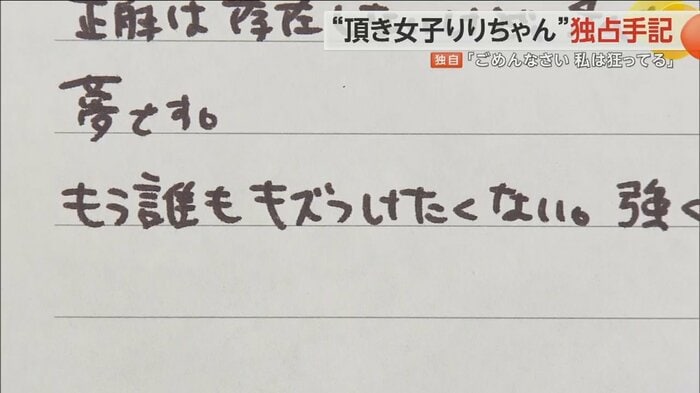 “頂き女子りりちゃん”独占手記
独自 「ごめんなさい 私は狂ってる」
正解は存在
夢です。
もう誰もキズつけたくない。強く